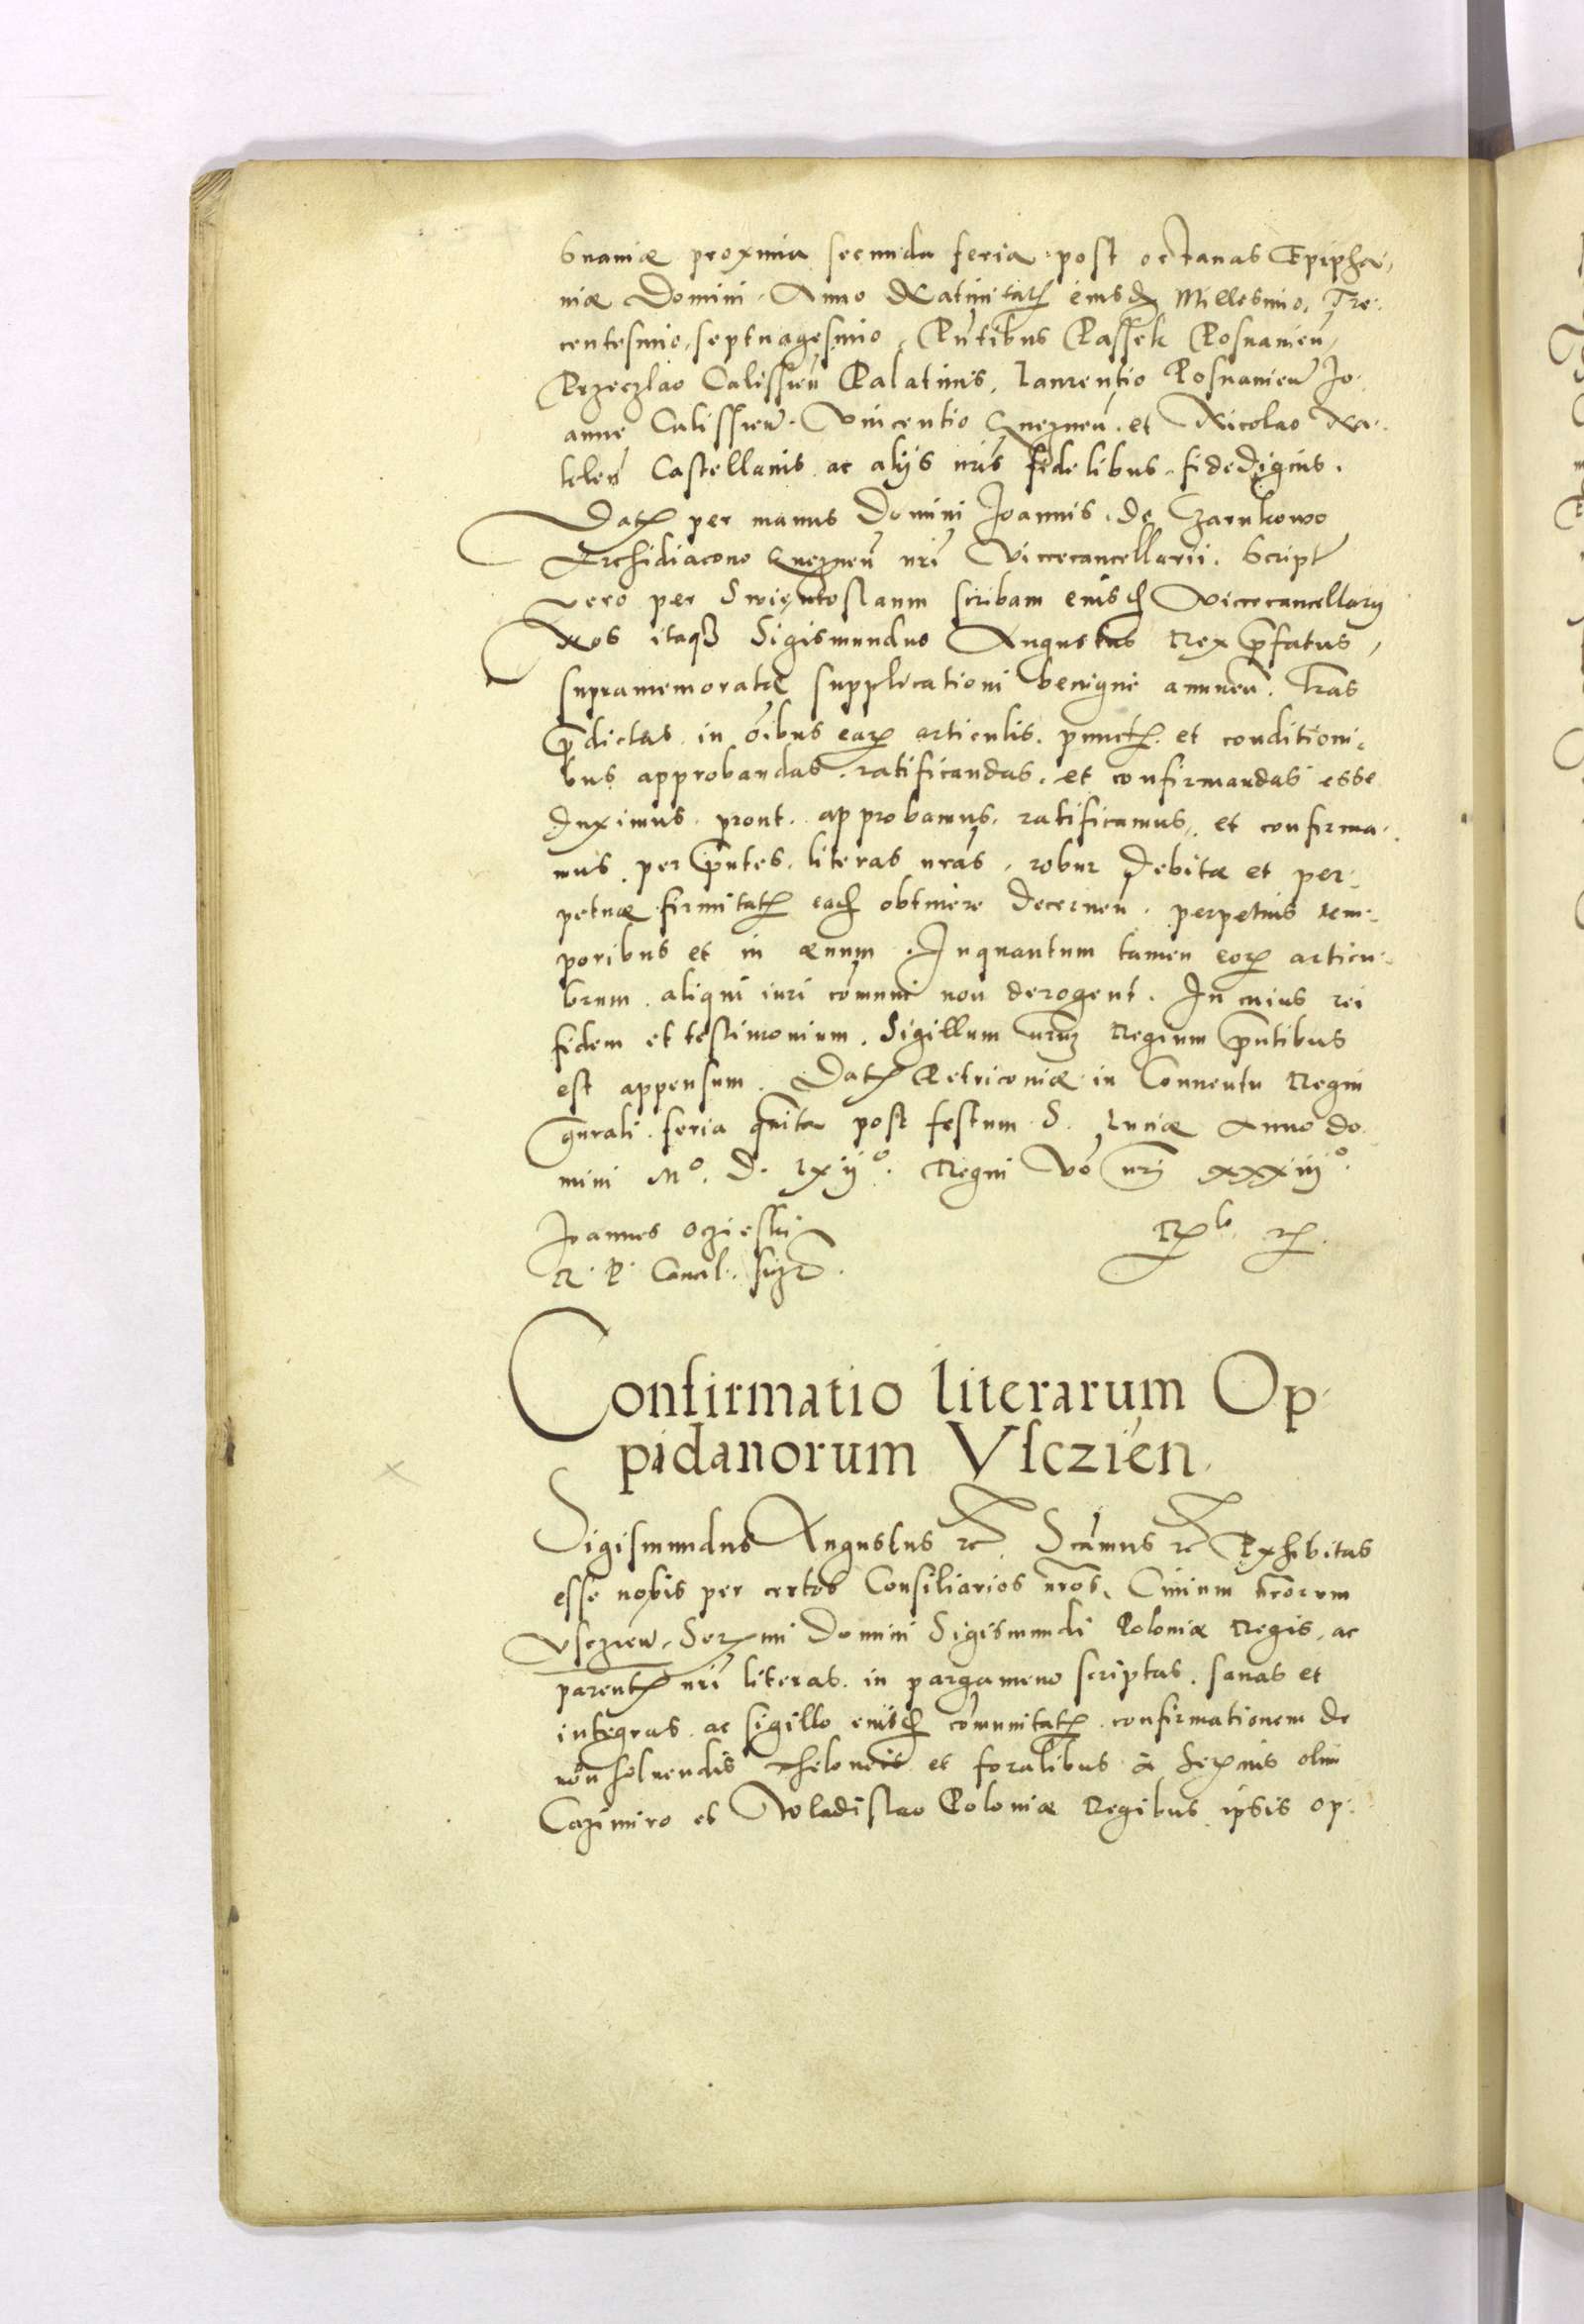 snaniæ proxima secunda feria post octauas Epipha-
niæ Domini. Anno Natiuitatꝭ eiusdꝫ Millesimo, Tre-
centesimo, septuagesimo, Pñtibus Passek Posnanien̄,
Przeczlao Calissien̄ Palatinis, Laurentio Posnanien̄ Jo-
anne Calissien̄. Vincentio Gneznen̄. et Nicolao Na-
kelen̄ Castellanis ac alijs nr̄is fidelibus fidedignis.
Datꝭ per manus Domini Joannis de Czarnkowo
Archidiacono Gneznen̄ nr̄i Vicecancellarii. Script̄
vero per Swiętoslaum scribam eiusdꝫ Vicecancellarij
Nos itaqꝫ Sigismundus Augustus Rex p̄fatus,
supramemoratæ supplicationi benigne annuen̄. l̄ras
p̄dictas in oĩbus earꝫ articulis. punctꝭ. et conditioni-
bus approbandas. ratificandas. et confirmandas esse
duximus. prout. approbamus. ratificamus, et confirma-
mus. per p̄ntes. literas nr̄as, robur debitæ et per-
petuæ firmitatꝭ easdꝫ obtinere decernen̄. perpetuis tem-
poribus et in æuum. Inquantum tamen eorꝫ articu-
lorum aliqui iuri com̄uni non derogent. In cuius rei
fidem et testimonium. Sigillum nr̄um Regium p̄ntibus
est appensum. Datꝭ Petricouiæ in Conuentu Regni
gn̄rali. feria quita post festum S. Luciæ Anno do-
mini Mº. D. Lxijº. Regni v̄o nr̄i xxxiijº.
Joannes oczieski
R. P. Cancel.
Confirmatio literarum Op-
pidanorum Vsczien̄.
Sigismundus Augustus ꝛc. Sc̄amus ꝛc Exhibitas
esse nobis per certos Consiliarios nr̄os. Ciuium nr̄orum
Vsczien̄. Serꝫmi Domini Sigismundi Poloniæ Regis, ac
parentꝭ nr̄i literas. in pargameno scriptas. sanas et
integras ac sigillo eiusdꝫ com̄unitatꝭ. confirmationem de
non soluendis theloneis et foralibus à Serꝫmis olim
Cazimiro et Wladislao Poloniæ Regibus ipsis op-